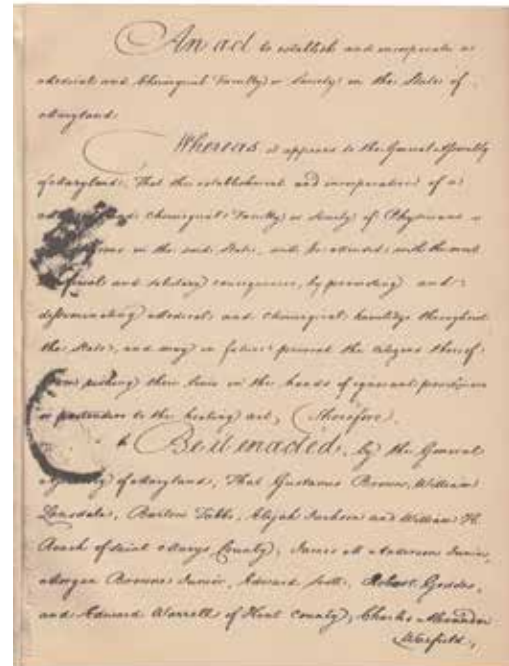 An act to establish and incorporate a
Medical and Chirurgical Faculty or Society in the State of
Maryland.
Whereas it appears to the General Assembly
of Maryland, That the establishment and incorporation of a
and Chirurgical Faculty or Society of Physicians
in the said State, will be attended with the most
and salutary consequences, by promoting and
disseminating Medical and Chirurgical knowledge throughout
the State, and may in future prevent the citizens thereof
from risking their lives in the hands of ignorant practitioners
or pretenders to the healing art, Therefore,
Be it enacted, by the General
of Maryland, That Gustavus Brown, William
Lansdale, Barton Tabbs, Elijah Jackson and William H.
Roach of Saint Marys County, James M Anderson Junior,
Morgan Browne Junior, Edward Scott, Robert Geddes,
and Edward Worrell of Kent County, Charles Alexander
Warfield,